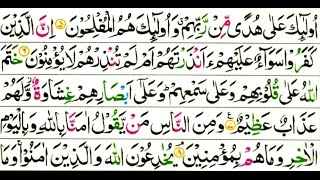 اُولٰٓئِكَ عَلٰى هُدًى مِّنْ رَّبِّهِمْ وَاُولٰٓئِكَ هُمُ الْمُفْلِحُوْنَ ۝٥ اِنَّ الَّذِيْنَ
كَفَرُوْا سَوَآءٌ عَلَيْهِمْ ءَاَنْذَرْتَهُمْ اَمْ لَمْ تُنْذِرْهُمْ لَا يُؤْمِنُوْنَ ۝٦ خَتَمَ
اللّٰهُ عَلٰى قُلُوْبِهِمْ وَعَلٰى سَمْعِهِمْ وَعَلٰٓى اَبْصَارِهِمْ غِشَاوَةٌ وَّلَهُمْ
عَذَابٌ عَظِيْمٌ ۝٧ وَمِنَ النَّاسِ مَنْ يَّقُوْلُ اٰمَنَّا بِاللّٰهِ وَبِالْيَوْمِ
الْاٰخِرِ وَمَا هُمْ بِمُؤْمِنِيْنَ ۝٨ يُخٰدِعُوْنَ اللّٰهَ وَالَّذِيْنَ اٰمَنُوْا وَمَا